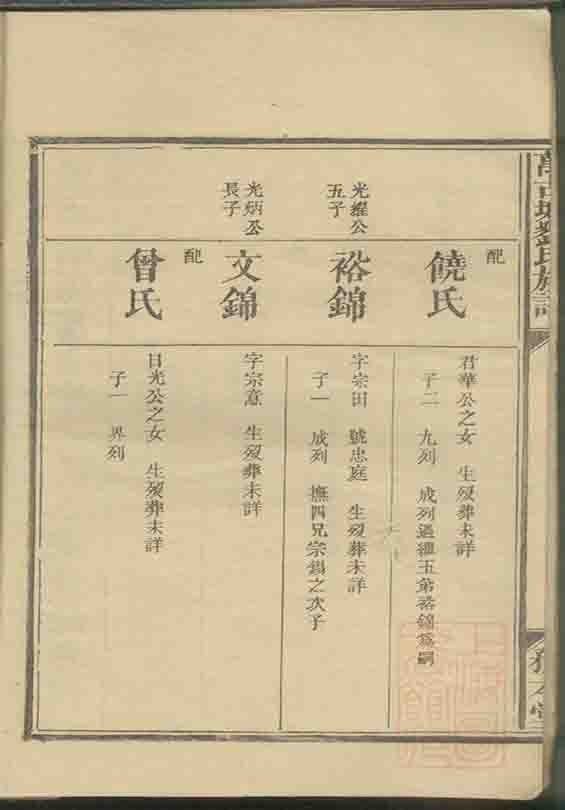 萬古塘劉氏族譜
配
饒氏
君華公之女 生歿葬未詳
子二 九列 成列過繼五弟裕錦爲嗣
光耀公
五子
裕錦
字宗田 號忠庭 生歿葬未詳
子一 成列 撫四兄宗錫之次子
光炳公
長子
文錦
字宗意 生歿葬未詳
配
曾氏
日光公之女 生歿葬未詳
子一 界列